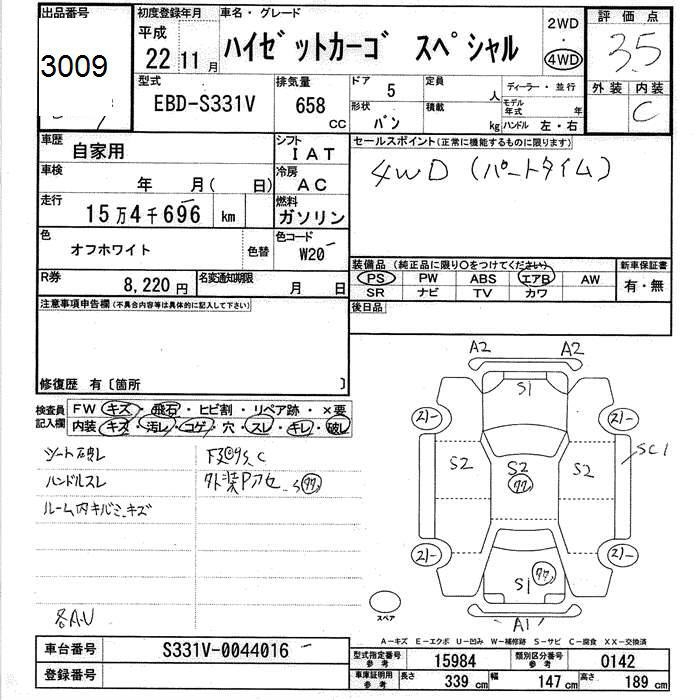 出品番号 初度登録年月 車名・グレード 2WD 評価点
3009 平成 22 11月 ハイゼットカーゴ スペシャル ・ 4WD 3.5
型式 排気量 ドア 5 定員 人 ディーラー・並行 外装 内装
EBD-S331V 658 CC 形状 バン 積載 kg モデル年式 年 ハンドル 左・右 C
車歴 自家用 シフト IAT セールスポイント(正常に機能するものに限ります)
車検 年 月( 日) 冷房 AC 4WD (パートタイム)
走行 15万4千696 km 燃料 ガソリン
色 オフホワイト 色替 色コード W20
装備品(純正品に限り○をつけてください) 新車保証書
PS PW ABS エアB AW 有・無
SR ナビ TV カワ
R券 8,220円 名変通知期限 月 日
後日品
注意事項申告欄(不具合内容等は具体的に記入して下さい)
修復歴 有〔箇所 〕
検査員記入欄 FW キズ・飛石・ヒビ割・リペア跡・×要
内装 キズ・汚し・コゲ・穴・スレ・キレ・破し
シート破レ
下廻りS,C
ハンドルスレ
外装Pアセ
ルーム内キバミ、キズ
各A.U
A2 A2
S1
21- 21-
SC1
S2 S2 S2
21- 21-
S1
A1
スペア
A-キズ E-エクボ U-凹み W-補修跡 S-サビ C-腐食 XX-交換済
車台番号 S331V-0044016
登録番号
型式指定番号 参考 15984 類別区分番号 参考 0142
車庫証明用 参考 長さ 339cm 幅 147cm 高さ 189cm